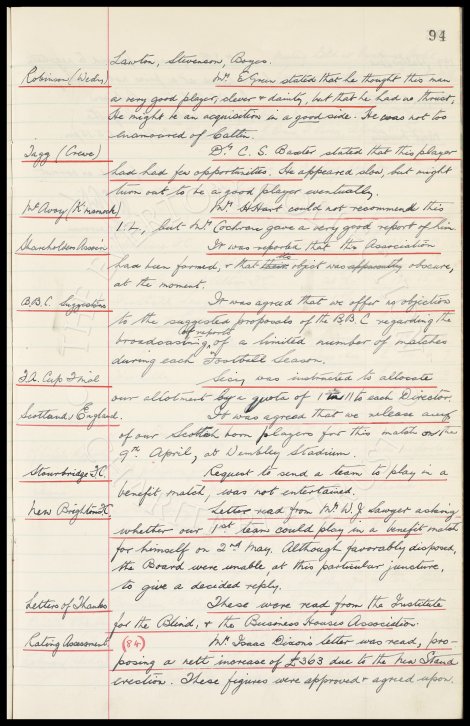 94
Lawton, Stevenson, Boyes.
Robinson (Wedny) Mr. E. Green stated that he thought this man
a very good player, clever & dainty, but that he had no thrust,
He might be an acquisition in a good side. He was not too
enamoured of Catlin.
Tagg (Crewe) Dr. C. S. Baxter stated that this player
had had few opportunities. He appeared slow, but might
turn out to be a good player eventually.
McAvoy (K'marnock) Mr. H. Hart could not recommend this
I.L, but Mr. Cochrane gave a very good report of him.
Shareholders Assocn It was reported that this Association
had been formed, & that its object was apparently obscure,
at the moment.
B.B.C. Suggestions It was agreed that we offer no objection
to the suggested proposals of the B.B.C regarding the
broadcasting, of reports of a limited number of matches
during each Football Season.
F.A. Cup Final Secy was instructed to allocate
our allotment by a quota of 1 to 11 to each Director.
Scotland v England. It was agreed that we release any
of our Scottish born players for this match on the
9th. April, at Wembley Stadium.
Stourbridge F.C. Request to send a team to play in a
benefit match, was not entertained.
New Brighton F.C. Letter read from Mr W. J. Sawyer asking
whether our 1st team could play in a benefit match
for himself on 2nd May. Although favorably disposed,
the Board were unable at this particular juncture,
to give a decided reply.
Letters of Thanks These were read from the Institute
for the Blind, & the Business Houses Association.
Rating Assessment (84) Mr. Isaac Dixon's letter was read, pro-
posing a nett increase of £363 due to the New Stand
erection. These figures were approved & agreed upon.